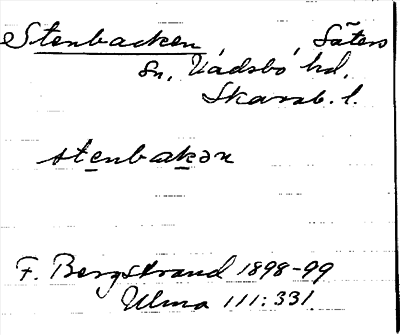 Stenbacken, Säters
sn, Vadsbo hd,
Skarab. l.
stenbakən
F. Bergstrand 1898-99
Ulma 111:331.